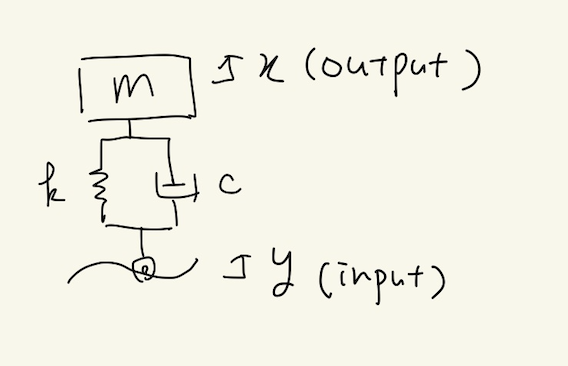 m
x (output)
k
c
y (input)